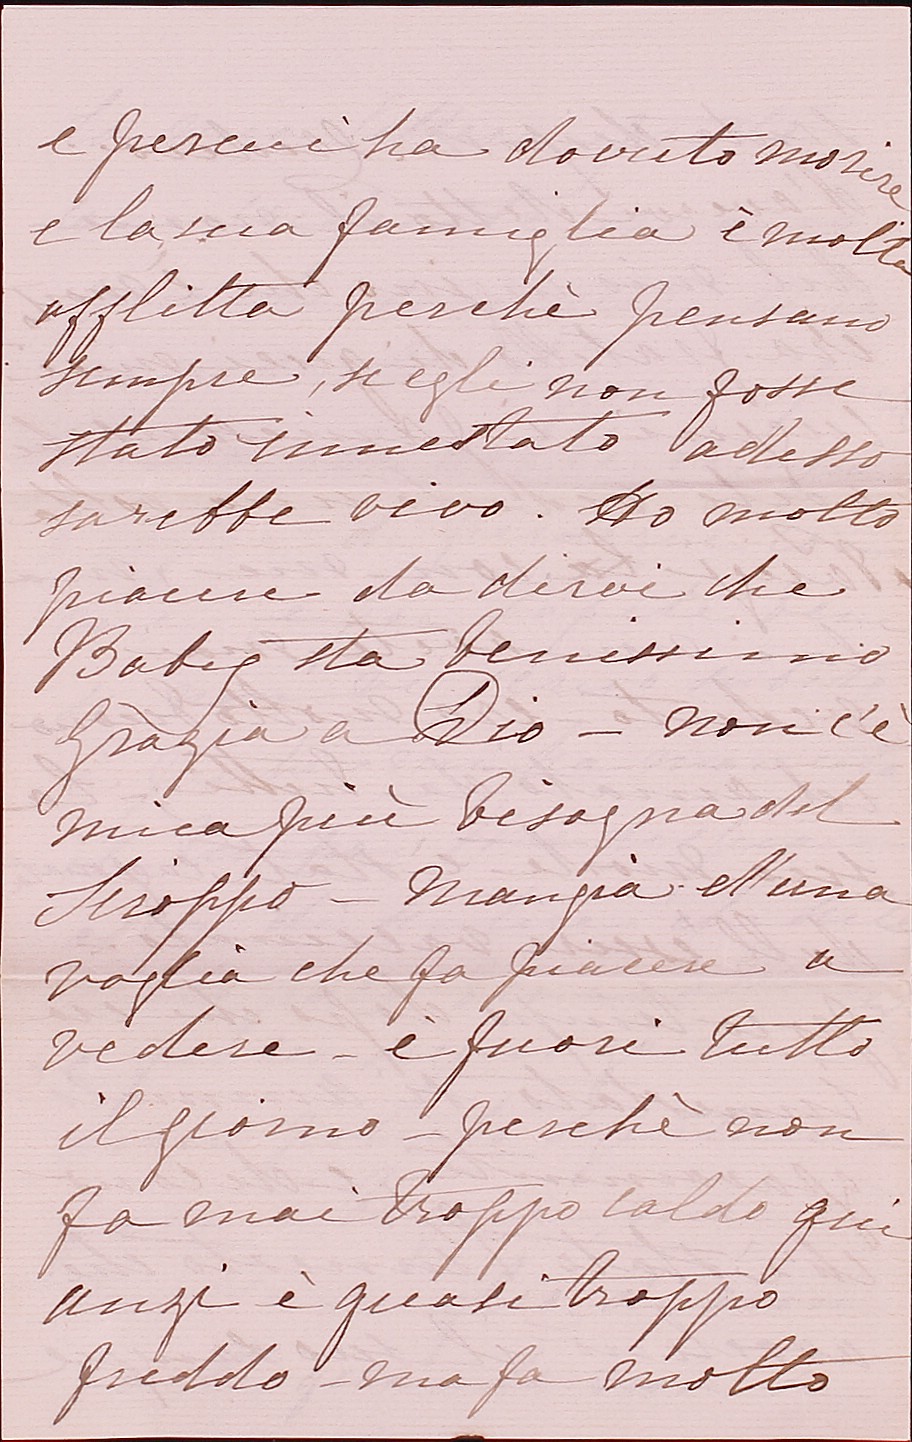 e percuì ha dovuto morire
e la sua famiglia è molta
afflitta perchè pensano
sempre, se egli non fosse
stato innestato adesso
sarebbe vivo. Ho molto
piacere da dirvi che
Baby sta benissimo
Gràzia a Dio – non c'è
mica più bisogna del
Siroppo – Mangia d'una
voglia che fa piacere a
vedere – è fuori tutto
il giorno – perchè non
fa mai troppo caldo qui
anzi è quasi troppo
freddo – ma fa molto